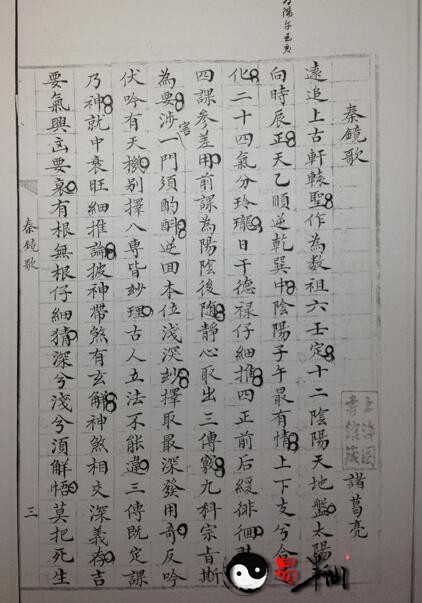 秦鏡歌
諸葛亮
遠追上古軒轅聖作為数祖六壬定十二陰陽天地盤太陽
向時辰正天乙順逆乾巽中陰陽子午最有情上下支兮合
化二十四氣分玲瓏日干德禄仔細推四正前后緩徘徊
四課參差用前課為陽陰後随靜心取出三傳竅九科宗旨斯
為要涉害一門須酌斟逆回本位淺深玅擇取最深發用奇反吟
伏吟有天機别擇八專皆玅理古人立法不能違三傳既定課
乃神就中衰旺細推論披神帶煞有玄解神煞相交深義存吉
要氣興凶要衰有根無根仔細猜深兮淺兮須解悟莫把死生
秦鏡歌
三